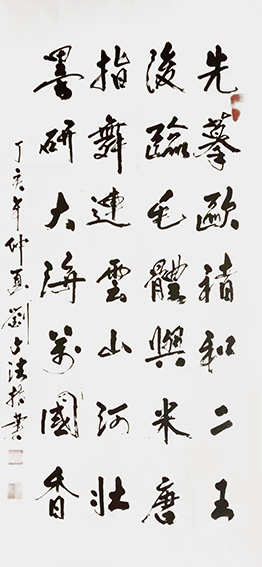 先摹歐褚和二王
後臨毛體與米唐
指舞連雲山河壯
墨研大海萬國香
丁亥年仲夏劉占法指書